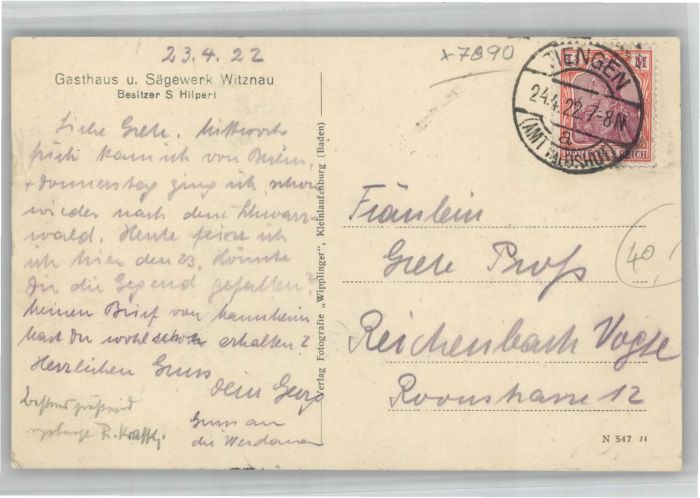 23.4.22
Gasthaus u. Sägewerk Witznau
Besitzer S Hilpert
Liebe Grete. Mittwoch
früh kam ich von Berlin,
+ Donnerstag ging ich schon
wieder nach dem Schwarz-
wald. Heute feiere ich
ich hier den 23. Könnte
Dir die Gegend gefallen?
Meinen Brief von Mannheim
hast Du wohl schon erhalten?
Herzlichen Gruss
Dein Georg
Gruss an
die Werdauer
R. Krafft
Verlag Fotografie „Wipplinger", Kleinlaufenburg (Baden)
x7890
TIENGEN
24.4.22.7-8N
a
(AMT WALDSHUT)
M
DEUTSCHES REICH
Fräulein
Grete Proß
Reichenbach Vogtl
Roonstrasse 12
40,
N 547